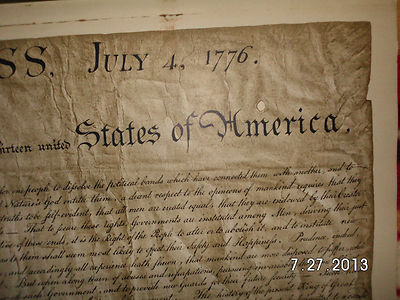 SS. JULY 4, 1776.
thirteen united States of America.
for one people to dissolve the political bands which have connected them with another, and to
Nature's God entitle them, a decent respect to the opinions of mankind requires that they
truths to be self-evident, that all men are created equal, that they are endowed by their Creator
That to secure these rights, Governments are instituted among Men, deriving their just
of these ends, it is the Right of the People to alter or to abolish it, and to institute new
to them shall seem most likely to effect their Safety and Happiness. Prudence, indeed,
and accordingly all experience hath shewn, that mankind are more disposed to suffer, while
But when a long train of abuses and usurpations, pursuing invariably
such Government, and to provide new Guards for their future
The history of the present King of Great
7.27.2013